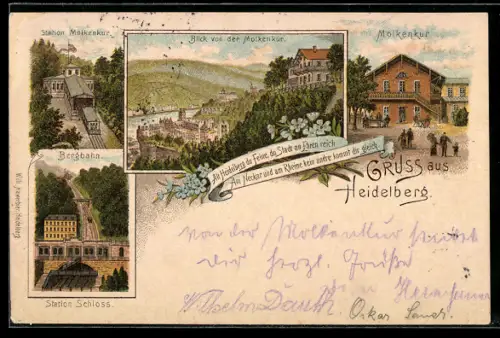 Station Molkenkur.
Blick von der Molkenkur.
Molkenkur
Bergbahn.
Station Schloss.
Alt Heidelberg du Feine, du Stadt an Ehren reich
Am Neckar und am Rheine kein andre kommt dir gleich.
Gruss aus
Heidelberg.
Von der Molkenkur sendet
Dir herzl. Grüße
Wilhelm
Oskar